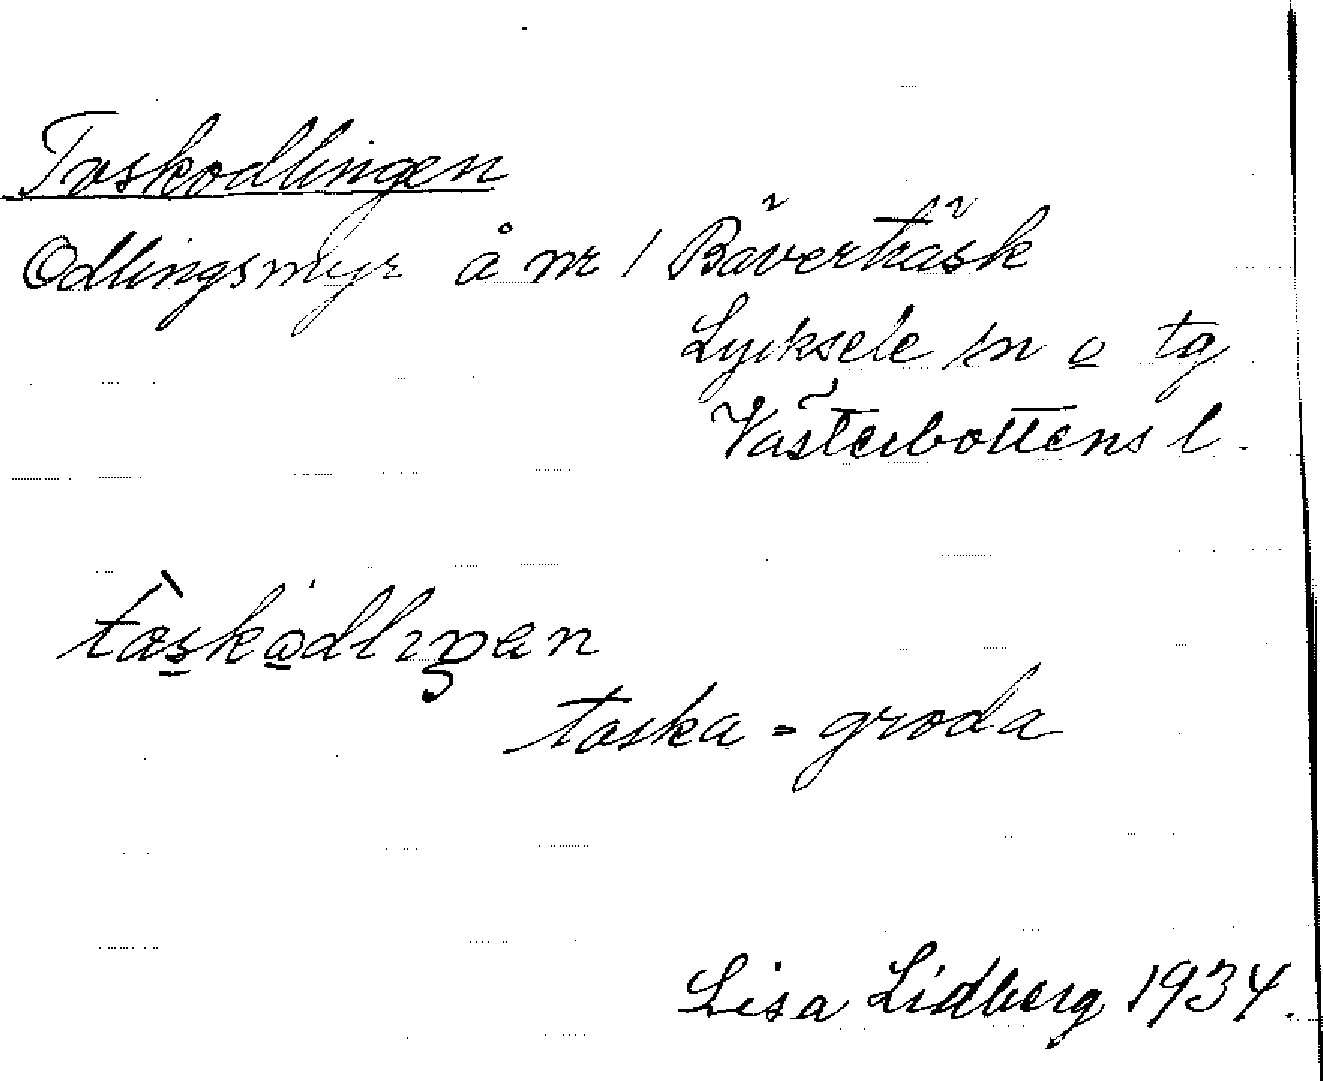 Toskodlingen
Odlingsmyr å nr 1 Bäverträsk
Lycksele sn o tg
Västerbottens l.
tòskådlıŋen
toska = groda
Lisa Lidberg 1934.